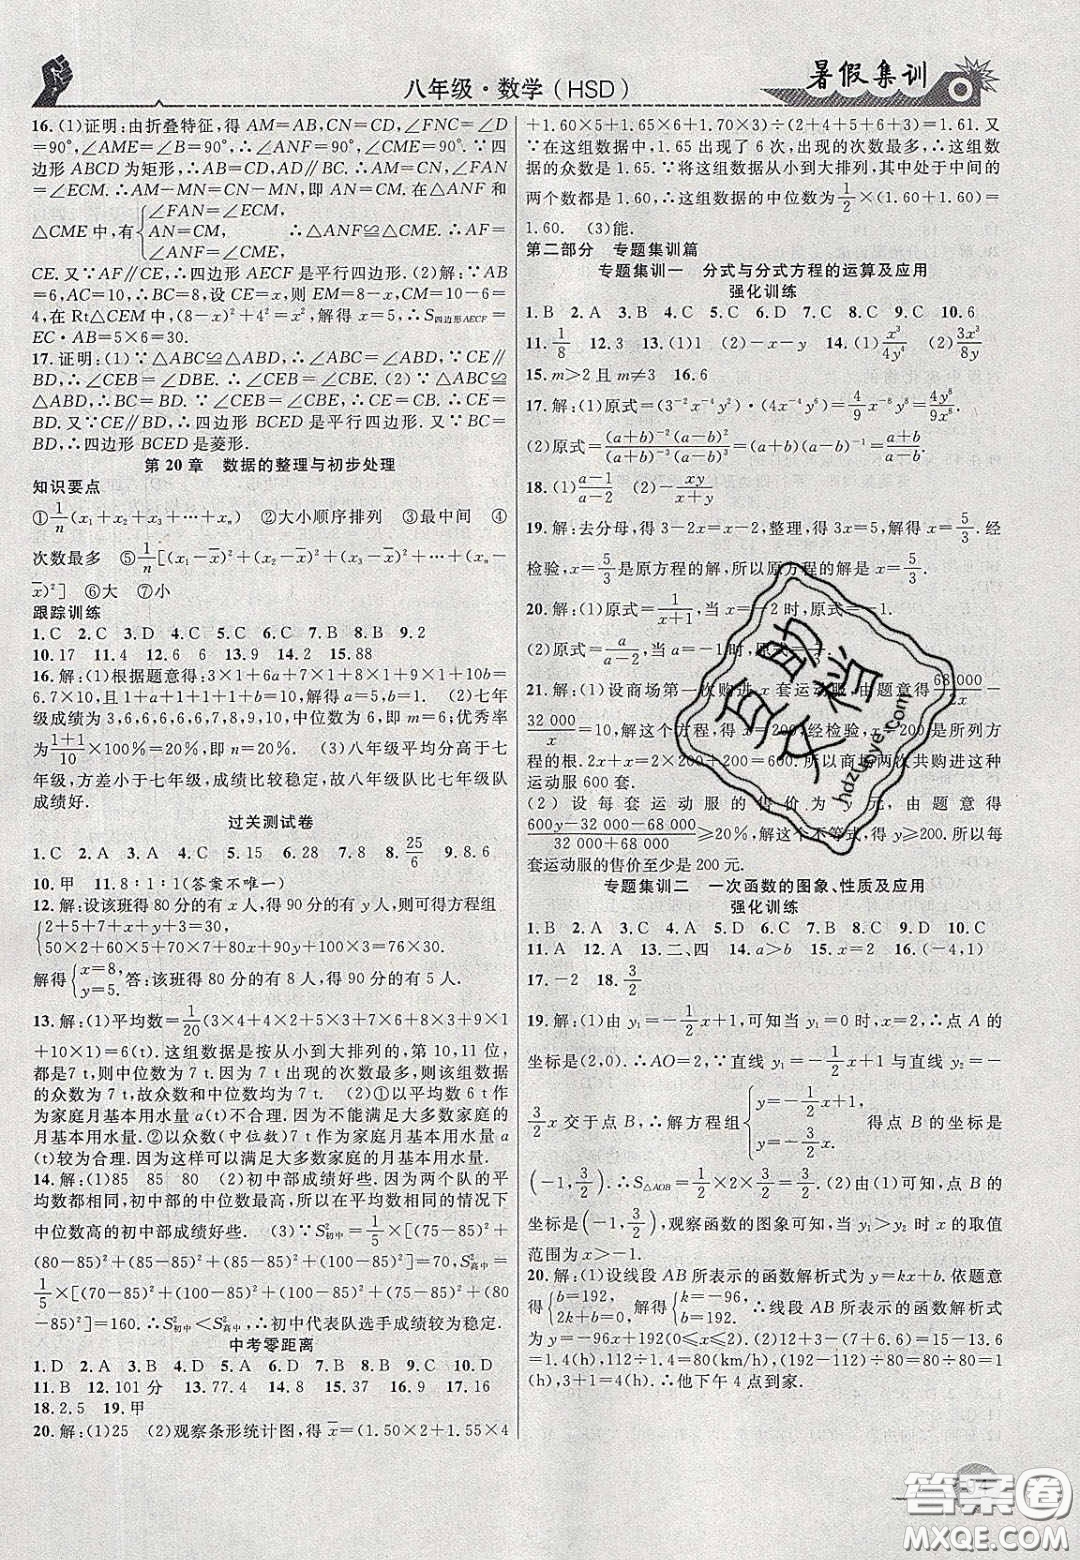 八年级·数学(HSD)
暑假集训
16.(1)证明:由折叠特征,得 AM=AB,CN=CD,∠FNC=∠D
=90°,∠AME=∠B=90°,∴∠ANF=90°=∠CME.∵四
边形 ABCD 为矩形,∴AB=CD,AD∥BC.∴AM=CN,∠FAN
=∠ECM.∴AM-MN=CN-MN,即 AN=CM.在△ANF 和
△CME 中,有{∠FAN=∠ECM,
AN=CM,
∠ANF=∠CME,
∴△ANF≌△CME.∴AF=
CE.又∵AF∥CE,∴四边形 AECF 是平行四边形.(2)解:∵AB=
6,AC=10,∴BC=8.设 CE=x,则 EM=8-x,CM=10-6=
4,在 Rt△CEM 中,(8-x)²+4²=x²,解得 x=5,∴S四边形AECF=
EC·AB=5×6=30.
17.证明:(1)∵△ABC≌△ABD,∴∠ABC=∠ABD,∵CE∥
BD,∴∠CEB=∠DBE.∴∠CEB=∠CBE.(2)∵△ABC≌
△ABD,∴BC=BD.由(1)得∠CEB=∠CBE,∴CE=CB.∴CE
=BD.又∵CE∥BD,∴四边形 BCED 是平行四边形.
又∵BC=BD,∴四边形 BCED 是菱形.
第 20 章 数据的整理与初步处理
知识要点
①1/n(x₁+x₂+x₃+…+xₙ) ②大小顺序排列 ③最中间 ④
次数最多 ⑤1/n[(x₁-x̄)²+(x₂-x̄)²+(x₃-x̄)²+…+(xₙ-
x̄)²] ⑥大 ⑦小
跟踪训练
1.C 2.C 3.D 4.C 5.C 6.C 7.B 8.B 9.2
10.17 11.4 12.6 6 13.9 14.2 15.88
16.解:(1)根据题意得:3×1+6a+7×1+8×1+9×1+10b=
6.7×10,1+a+1+1+1+b=10,解得 a=5,b=1. (2)七年
级成绩为 3,6,6,6,6,6,7,8,9,10,中位数为 6,即 m=6;优秀率
为(1+1)/10×100%=20%,即 n=20%. (3)八年级平均分高于七
年级,方差小于七年级,成绩比较稳定,故八年级队比七年级队
成绩好.
过关测试卷
1.C 2.A 3.A 4.C 5.15 6.28 7.8 8.25/6 9.8.6
10.甲 11.8∶1∶1(答案不唯一)
12.解:设该班得80分的有 x 人,得90分的有 y 人,则可得方程组
{2+5+7+x+y+3=30,
50×2+60×5+70×7+80x+90y+100×3=76×30.
解得{x=8,
y=5.
答:该班得80分的有8人,得90分的有5人.
13.解:(1)平均数=1/20(3×4+4×2+5×3+7×6+8×3+9×1
+10×1)=6(t).这组数据是按从小到大排列的,第10,11位,
都是7 t,则中位数是7 t.因为7 t出现的次数最多,则该组数据
的众数为7 t.故众数和中位数均为7 t. (2)①以平均数6 t作
为家庭月基本用水量a(t)不合理.因为不能满足大多数家庭的
月基本用水量.②以众数(中位数)7 t作为家庭月基本用水量a
(t)较为合理.因为这样可以满足大多数家庭的月基本用水量.
14.解:(1)85 85 80 (2)初中部成绩好些.因为两个队的平
均数都相同,初中部的中位数最高,所以在平均数相同的情况下
中位数高的初中部成绩好些. (3)∵S²初中=1/5×[(75-85)²+
(80-85)²+(85-85)²+(85-85)²+(100-85)²]=70,S²高中=
1/5×[(70-85)²+(100-85)²+(100-85)²+(75-85)²+(80
-85)²]=160.∴S²初中<S²高中,∴初中代表队选手成绩较为稳定.
中考零距离
1.D 2.A 3.B 4.D 5.A 6.D 7.B 8.A 9.C 10.D
11.B 12.101分 13.77.4 14.8 15.37 16.9 17.16
18.2.5 19.甲
20.解:(1)25 (2)观察条形统计图,得 x̄=(1.50×2+1.55×4
+1.60×5+1.65×6+1.70×3)÷(2+4+5+6+3)=1.61.又
∵在这组数据中,1.65出现了6次,出现的次数最多,∴这组数
据的众数是1.65.∵将这组数据从小到大排列,其中处于中间的
两个数都是1.60,∴这组数据的中位数为1/2×(1.60+1.60)=
1.60. (3)能.
第二部分 专题集训篇
专题集训一 分式与分式方程的运算及应用
强化训练
1.B 2.A 3.B 4.C 5.C 6.C 7.C 8.C 9.C 10.6
11.1/8 12.3 13.(1)1 (2)-x-y 14.(1)x³/4y⁴ (2)3x³/8y
15.m>2且m≠3 16.6
17.解:(1)原式=(3⁻²x⁻⁴y²)·(4x⁻⁴y⁶)=4/9x⁻⁸y⁸=4y⁸/9x⁸.
(2)原式=(a+b)⁻²(a-b)²/(a+b)⁻³(a-b)³=(a+b)(a-b)⁻¹=(a+b)/(a-b).
18.(1)(a-1)/(a-2) (2)-xy/(x+y)
19.解:去分母,得3-2x=x-2,整理,得3x=5,解得x=5/3.经
检验,x=5/3是原方程的解,所以原方程的解是x=5/3.
20.解:(1)原式=1/(x+1),当x=-2时,原式=-1.
(2)原式=a/(a-2),当a= 时,原式=
21.解:(1)设商场第一次购进x套运动服.由题意得68 000/2x-
32 000/x=10,解这个方程,得x=200,经检验,x=200是所列方
程的根.2x+x=2×200+200=600.所以商场两次共购进这种
运动服600套.
(2)设每套运动服的售价为y元,由题意得
(600y-32 000-68 000)/(32 000+68 000)≥20%,解这个不等式,得y≥200.所以每
套运动服的售价至少是200元.
专题集训二 一次函数的图象、性质及应用
强化训练
1.B 2.D 3.B 4.C 5.A 6.D 7.B 8.C 9.D 10.C
11.A 12.A 13.二、四 14.a>b 15.x=2 16.(-4,1)
17.-2 18.3/2
19.解:(1)由y₁=-1/2x+1,可知当y₁=0时,x=2,∴点A的
坐标是(2,0).∴AO=2.∵直线y₁=-1/2x+1与直线y₂=-
3/2x交于点B,∴解方程组{y=-1/2x+1,
y=-3/2x,
得点B的坐标是
(-1,3/2).∴S△AOB=1/2×2×3/2=3/2.(2)由(1)可知,点B的
坐标是(-1,3/2),观察函数的图象可知,当y₁>y₂时x的取值
范围为x>-1.
20.解:(1)设线段AB所表示的函数解析式为y=kx+b.依题意
得{b=192,
2k+b=0,
解得{k=-96,
b=192.
∴线段AB所表示的函数解析式
为y=-96x+192(0≤x≤2).(2)12+3-(7+6.6)=15-13.6
=1.4(h),112÷1.4=80(km/h),(192-112)÷80=80÷80=1
(h),3+1=4(h).∴他下午4点到家.
互助
文档
hdzuoye.com
答案圈
MXQE.COM